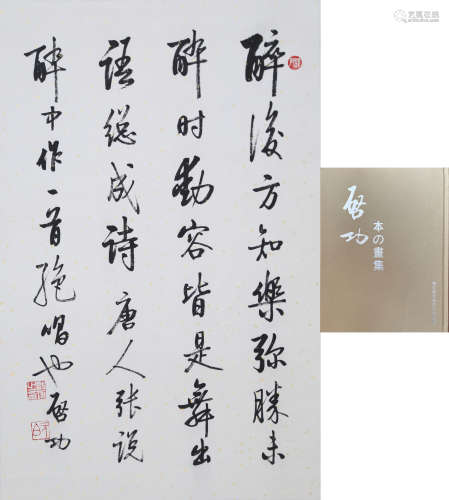 醉後方知樂弥勝未
醉时動容皆是舞出
语總成诗唐人张说
醉中作一首绝唱也启功
啓功
本の畫集